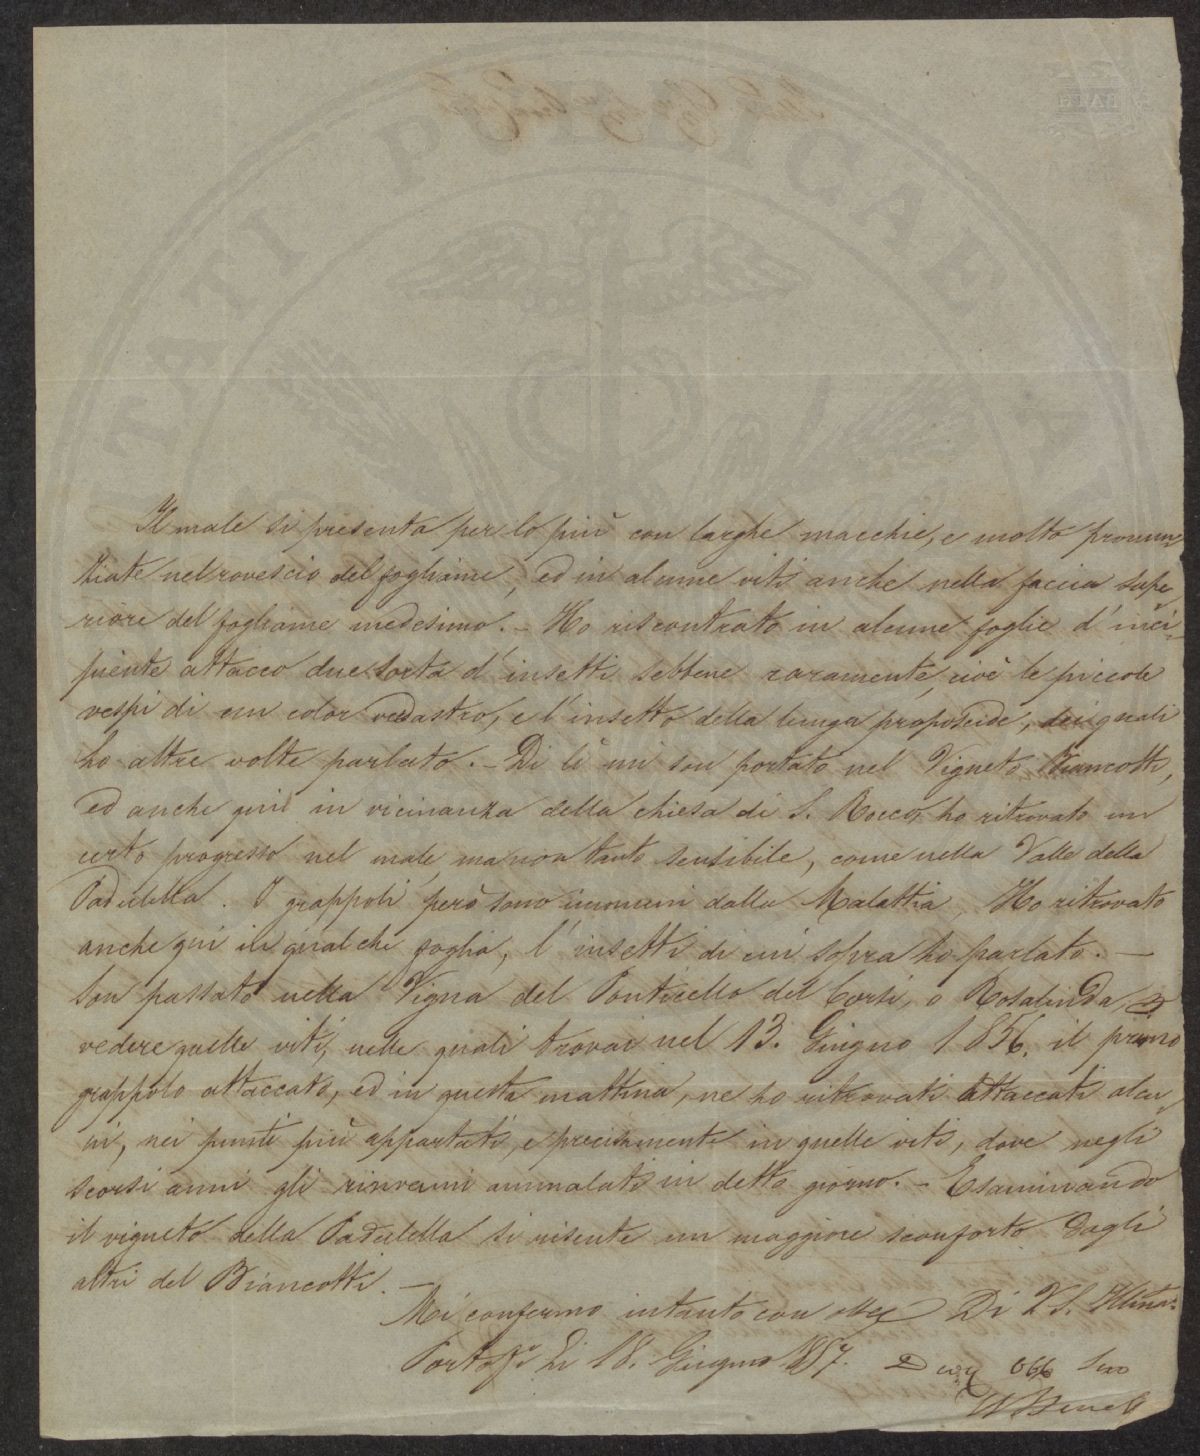 Il male si presenta per lo più con larghe macchie, e molto pronun
ziate nel rovescio del fogliame, ed in alcune viti anche nella faccia supe
riore del fogliame medesimo. – Ho riscontrato in alcune foglie d'inci-
piente attacco due sorta d'insetti sebbene raramente, cioè le piccole
vespi di un color verdastro, e l'insetto della lunga proposcide, dei quali
ho altre volte parlato. – Di lì mi son portato nel Vigneto Biancotti,
ed anche quì in vicinanza della chiesa di S. Rocco ho ritrovato un
certo progresso nel male, ma non tanto sensibile, come nella Valle della
Padulella. I grappoli però sono immuni dalla Malattia, Ho ritrovato
anche quì in qualche foglia, l'insetti di cui sopra ho parlato. —
Son passato nella Vigna del Ponticello del Corsi, o Rosalinda a
vedere quelle viti, nelle quali trovai nel 13. Giugno 1856. il primo
grappolo attaccato, ed in questa mattina, ne ho ritrovati attaccati alcu-
ni, nei punti più appartati, e precisamente in quelle viti, dove negli
scorsi anni gli rinvenni ammalati in detto giorno. – Esaminando
il vigneto della Padulella si risente un maggiore sconforto dagli
altri del Biancotti. —
Mi confermo intanto con Di V S. Illma:
Portof° Li 18. Giugno 1857.
Suo